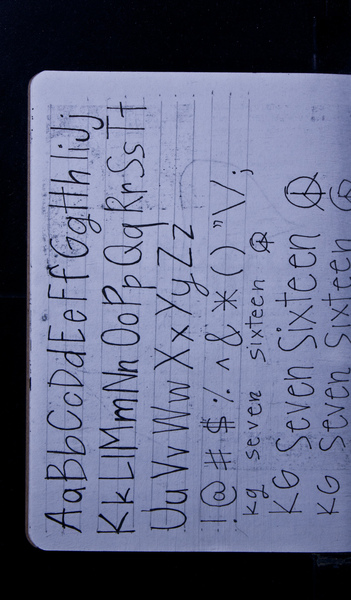 AaBbCcDdEeFfGgHhIiJj
KkLlMmNnOoPpQqRrSsTt
UuVvWwXxYyZz
!@#$%^&*()"\/;
kg seven sixteen
KG Seven Sixteen
KG Seven Sixteen